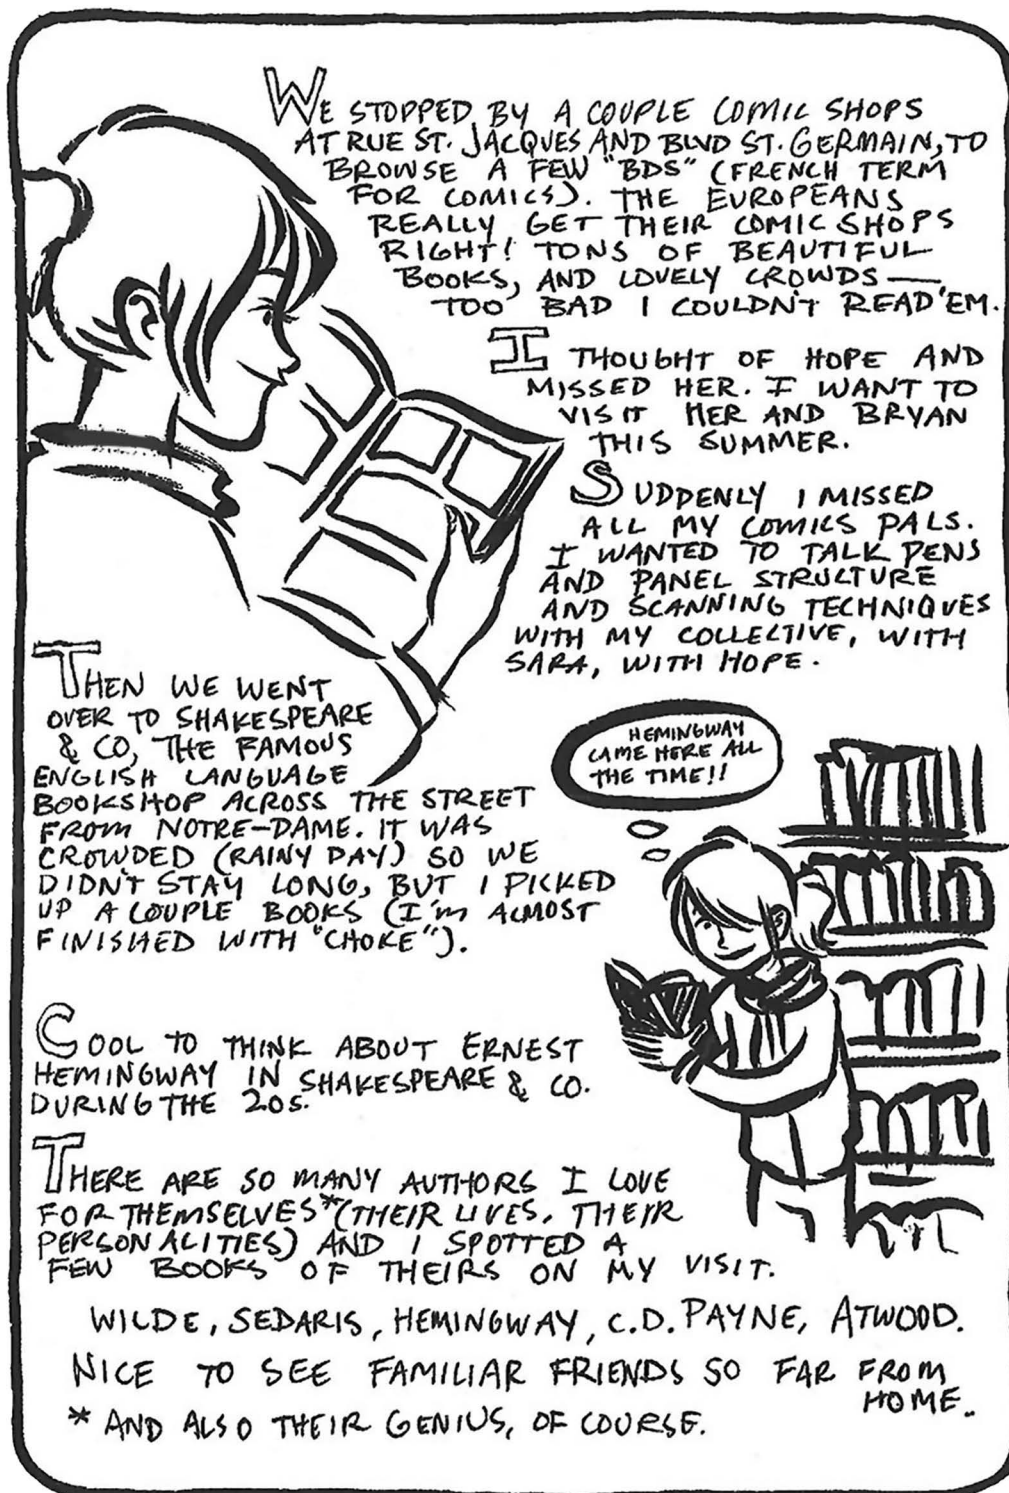 WE STOPPED BY A COUPLE COMIC SHOPS
AT RUE ST. JACQUES AND BLVD ST. GERMAIN, TO
BROWSE A FEW "BDS" (FRENCH TERM
FOR COMICS). THE EUROPEANS
REALLY GET THEIR COMIC SHOPS
RIGHT! TONS OF BEAUTIFUL
BOOKS, AND LOVELY CROWDS —
TOO BAD I COULDN'T READ 'EM.
I THOUGHT OF HOPE AND
MISSED HER. I WANT TO
VISIT HER AND BRYAN
THIS SUMMER.
SUDDENLY I MISSED
ALL MY COMICS PALS.
I WANTED TO TALK PENS
AND PANEL STRUCTURE
AND SCANNING TECHNIQUES
WITH MY COLLECTIVE, WITH
SARA, WITH HOPE.
THEN WE WENT
OVER TO SHAKESPEARE
& CO, THE FAMOUS
ENGLISH LANGUAGE
BOOKSHOP ACROSS THE STREET
FROM NOTRE-DAME. IT WAS
CROWDED (RAINY DAY) SO WE
DIDN'T STAY LONG, BUT I PICKED
UP A COUPLE BOOKS (I'M ALMOST
FINISHED WITH "CHOKE").
HEMINGWAY
CAME HERE ALL
THE TIME!!
COOL TO THINK ABOUT ERNEST
HEMINGWAY IN SHAKESPEARE & CO.
DURING THE 20S.
THERE ARE SO MANY AUTHORS I LOVE
FOR THEMSELVES* (THEIR LIVES, THEIR
PERSONALITIES) AND I SPOTTED A
FEW BOOKS OF THEIRS ON MY VISIT.
WILDE, SEDARIS, HEMINGWAY, C.D. PAYNE, ATWOOD.
NICE TO SEE FAMILIAR FRIENDS SO FAR FROM
HOME.
* AND ALSO THEIR GENIUS, OF COURSE.